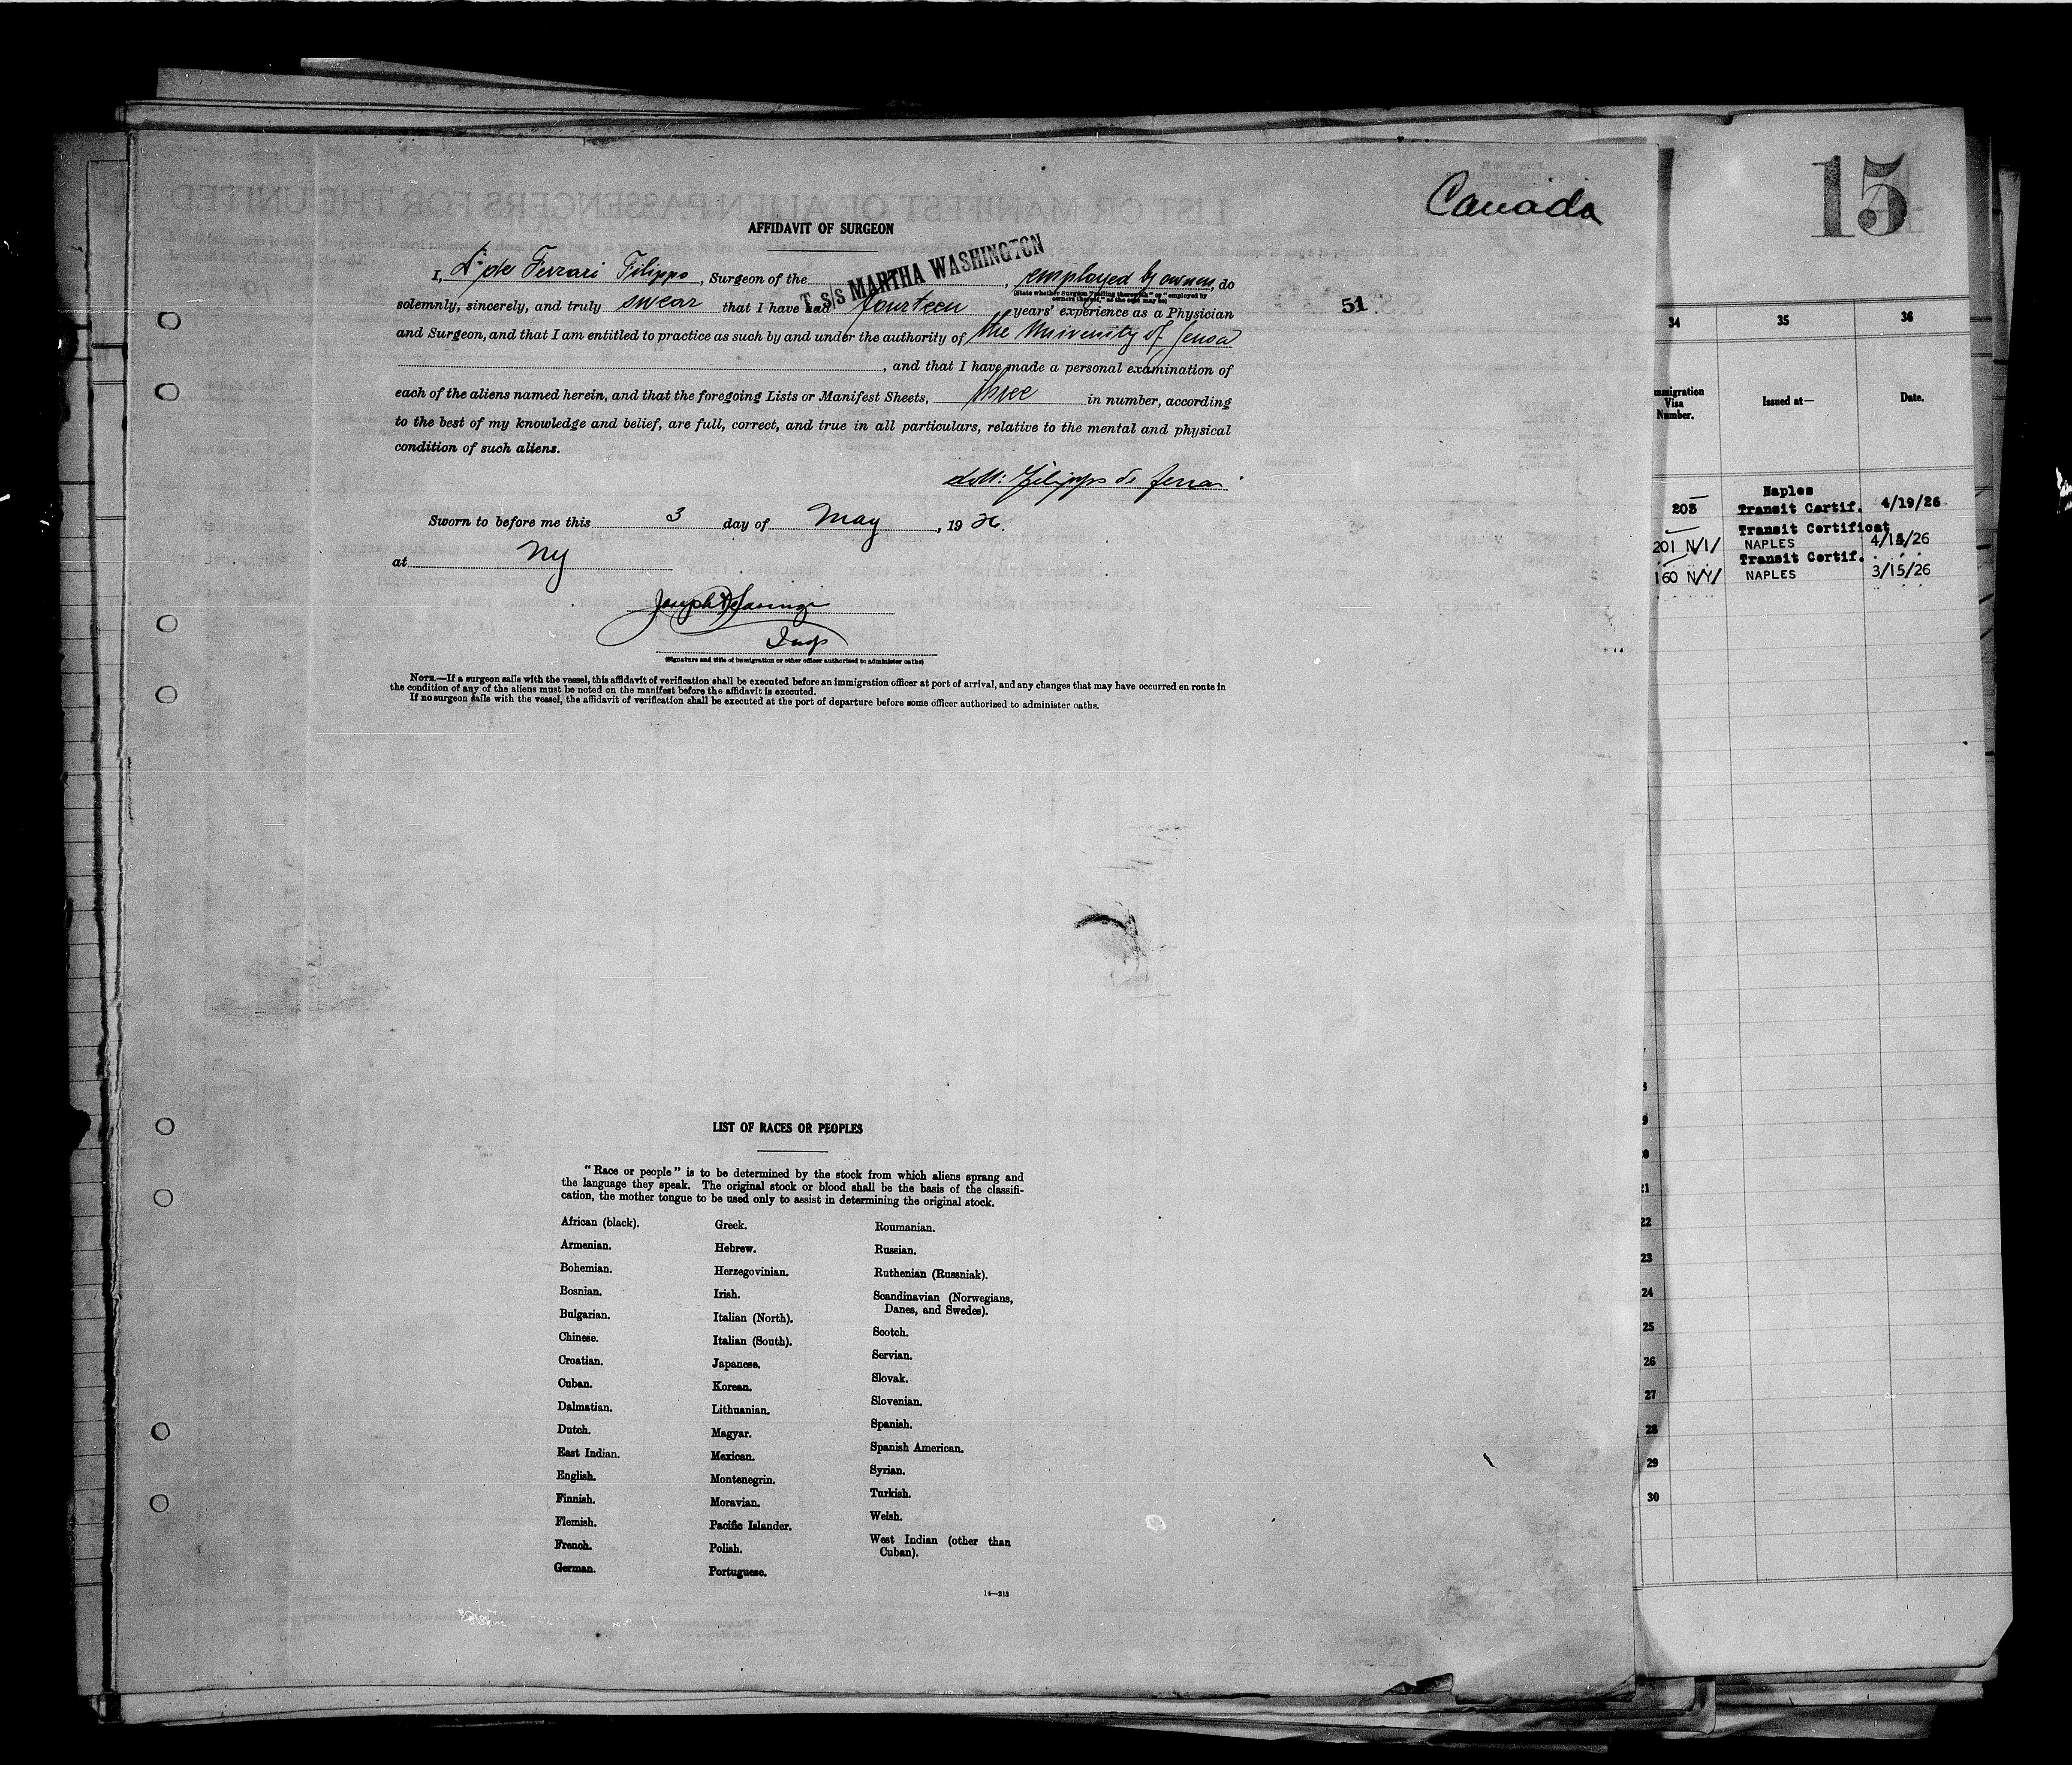 Canada
15
AFFIDAVIT OF SURGEON
I, Dr de Ferrari Filippo, Surgeon of the T. S/S MARTHA WASHINGTON, employed by owners, do
(State whether Surgeon "sailing therewith" or "employed by
owners thereof," as the case may be)
solemnly, sincerely, and truly swear that I have had fourteen years' experience as a Physician
51
and Surgeon, and that I am entitled to practice as such by and under the authority of the University of Genoa
, and that I have made a personal examination of
each of the aliens named herein, and that the foregoing Lists or Manifest Sheets, three in number, according
to the best of my knowledge and belief, are full, correct, and true in all particulars, relative to the mental and physical
condition of such aliens.
Filippo de Ferrari
Sworn to before me this 3 day of May, 19 26.
at NY
Joseph
Insp
(Signature and title of immigration or other officer authorized to administer oaths)
NOTE.—If a surgeon sails with the vessel, this affidavit of verification shall be executed before an immigration officer at port of arrival, and any changes that may have occurred en route in
the condition of any of the aliens must be noted on the manifest before the affidavit is executed.
If no surgeon sails with the vessel, the affidavit of verification shall be executed at the port of departure before some officer authorized to administer oaths.
LIST OF RACES OR PEOPLES
"Race or people" is to be determined by the stock from which aliens sprang and
the language they speak. The original stock or blood shall be the basis of the classifi-
cation, the mother tongue to be used only to assist in determining the original stock.
African (black).
Armenian.
Bohemian.
Bosnian.
Bulgarian.
Chinese.
Croatian.
Cuban.
Dalmatian.
Dutch.
East Indian.
English.
Finnish.
Flemish.
French.
German.
Greek.
Hebrew.
Herzegovinian.
Irish.
Italian (North).
Italian (South).
Japanese.
Korean.
Lithuanian.
Magyar.
Mexican.
Montenegrin.
Moravian.
Pacific Islander.
Polish.
Portuguese.
Roumanian.
Russian.
Ruthenian (Russniak).
Scandinavian (Norwegians,
Danes, and Swedes).
Scotch.
Servian.
Slovak.
Slovenian.
Spanish.
Spanish American.
Syrian.
Turkish.
Welsh.
West Indian (other than
Cuban).
14—213
34 35 36
mmigration
Visa
Number.
Issued at—
Date.
Naples
203 Transit Certif. 4/19/26
Transit Certificat
201 N/I/ NAPLES 4/15/26
Transit Certif.
160 N/Y/ NAPLES 3/15/26
22
23
24
25
26
27
28
29
30